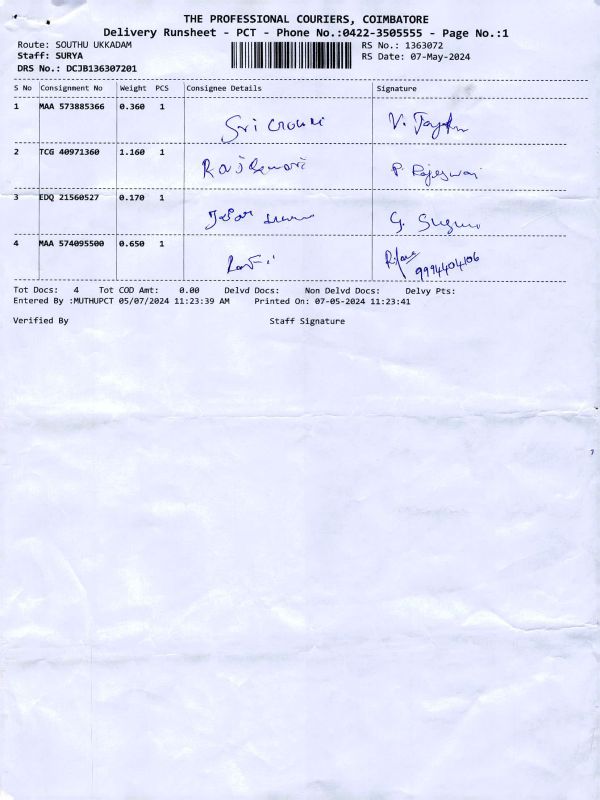 THE PROFESSIONAL COURIERS, COIMBATORE
Delivery Runsheet - PCT - Phone No.:0422-3505555 - Page No.:1
Route: SOUTHU UKKADAM RS No.: 1363072
Staff: SURYA RS Date: 07-May-2024
DRS No.: DCJB136307201
S No Consignment No Weight PCS Consignee Details Signature
1 MAA 573885366 0.360 1
Sri V.
2 TCG 40971360 1.160 1
P. Rajeswari
3 EDQ 21560527 0.170 1
G.
4 MAA 574095500 0.650 1
9994404106
Tot Docs: 4 Tot COD Amt: 0.00 Delvd Docs: Non Delvd Docs: Delvy Pts:
Entered By :MUTHUPCT 05/07/2024 11:23:39 AM Printed On: 07-05-2024 11:23:41
Verified By Staff Signature